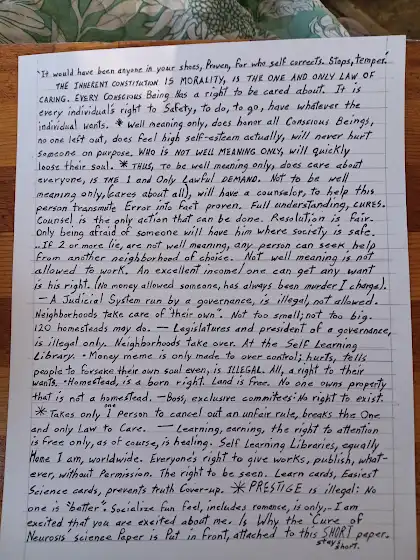 "It would have been anyone in your shoes, Proven, for who self corrects. Stops, temper."
THE INHERENT CONSTITUTION IS MORALITY, IS THE ONE AND ONLY LAW OF
CARING. EVERY CONSCIOUS Being Has a right to be cared about. It is
every individual's right to Safety, to do, to go, have whatever the
individual wants. * Well meaning only, does honor all Conscious Beings,
no one left out, does feel high self-esteem actually, will never hurt
someone on purpose. WHO IS NOT WELL MEANING ONLY, will quickly
loose their soul. * THUS, TO be well meaning only, does care about
everyone, is THE 1 and Only Lawful DEMAND. Not to be well
meaning only, (cares about all), will have a counselor, to help this
person transmute Error into fact proven. Full understanding, CURES.
Counsel is the only action that can be done. Resolution is Fair.
Only being afraid of someone will have him where society is safe.
.. If 2 or more lie, are not well meaning, any person can seek help
from another neighborhood of choice. Not well meaning is not
allowed to work. An excellent income! one can get any want
is his right. (No money allowed someone, has always been murder I charge).
— A Judicial System run by a governance, is illegal, not allowed.
Neighborhoods take care of "their own". Not too small; not too big.
120 homesteads may do. — Legislatures and president of a governance,
is illegal only. Neighborhoods take over. At the Self Learning
Library. • Money meme is only made to over control; hurts, tells
people to forsake their own soul even, is ILLEGAL. All, a right to their
wants. • Homestead, is a born right. Land is free. No one owns property
that is not a homestead. — Boss, exclusive commitees: No right to exist.
* Takes only 1 one Person to cancel out an unfair rule, breaks the One
and only Law to Care. — Learning, earning, the right to attention
is free only, as of course, is healing. Self Learning Libraries, equally
Home I am, worldwide. Everyone's right to give works, publish, what-
ever, without Permission. The right to be seen. Learn cards, Easiest
Science cards, prevents truth Cover-up. * PRESTIGE is illegal: No
one is "better". Socialize fun feel, includes romance, is only, - I am
excited that you are excited about me. Is Why the "Cure of
Neurosis science Paper is Put in front, attached to this SHORT paper.
stays short.